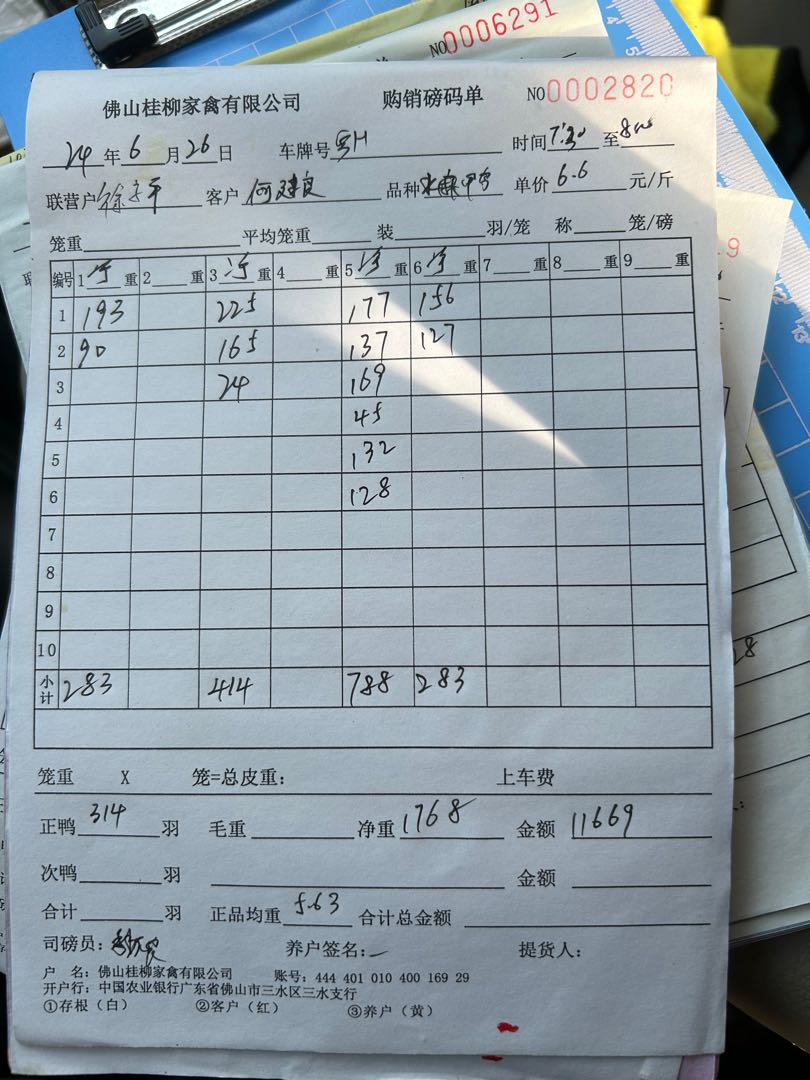 NO0006291
佛山桂柳家禽有限公司 购销磅码单 NO0002820
24年6月26日 车牌号 时间7:30至8
联营户徐 平 客户何建良 品种 单价6.6元/斤
笼重 平均笼重 装 羽/笼 称 笼/磅
编号 1净重 2 重 3净重 4 重 5净重 6净重 7 重 8 重 9 重
1 193 225 177 156
2 90 165 137 127
3 24 169
4 45
5 132
6 128
7
8
9
10
小计 283 414 788 283
笼重 X 笼=总皮重: 上车费
正鸭314羽 毛重 净重1768 金额11669
次鸭 羽 金额
合计 羽 正品均重5.63 合计总金额
司磅员: 养户签名: 提货人:
户 名:佛山桂柳家禽有限公司 账号:444 401 010 400 169 29
开户行:中国农业银行广东省佛山市三水区三水支行
①存根(白) ②客户(红) ③养户(黄)